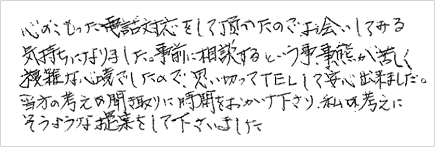 心のこもった電話対応をして頂かたのでお会いしてみる
気持ちになりました。事前に相談するという事事態が苦しく
複雑な心境でしたので、思い切ってTELして安心出来ました。
当方の考えの聞き取りに時間をおかけ下さり、私の考えに
そうようなお提案をして下さいました